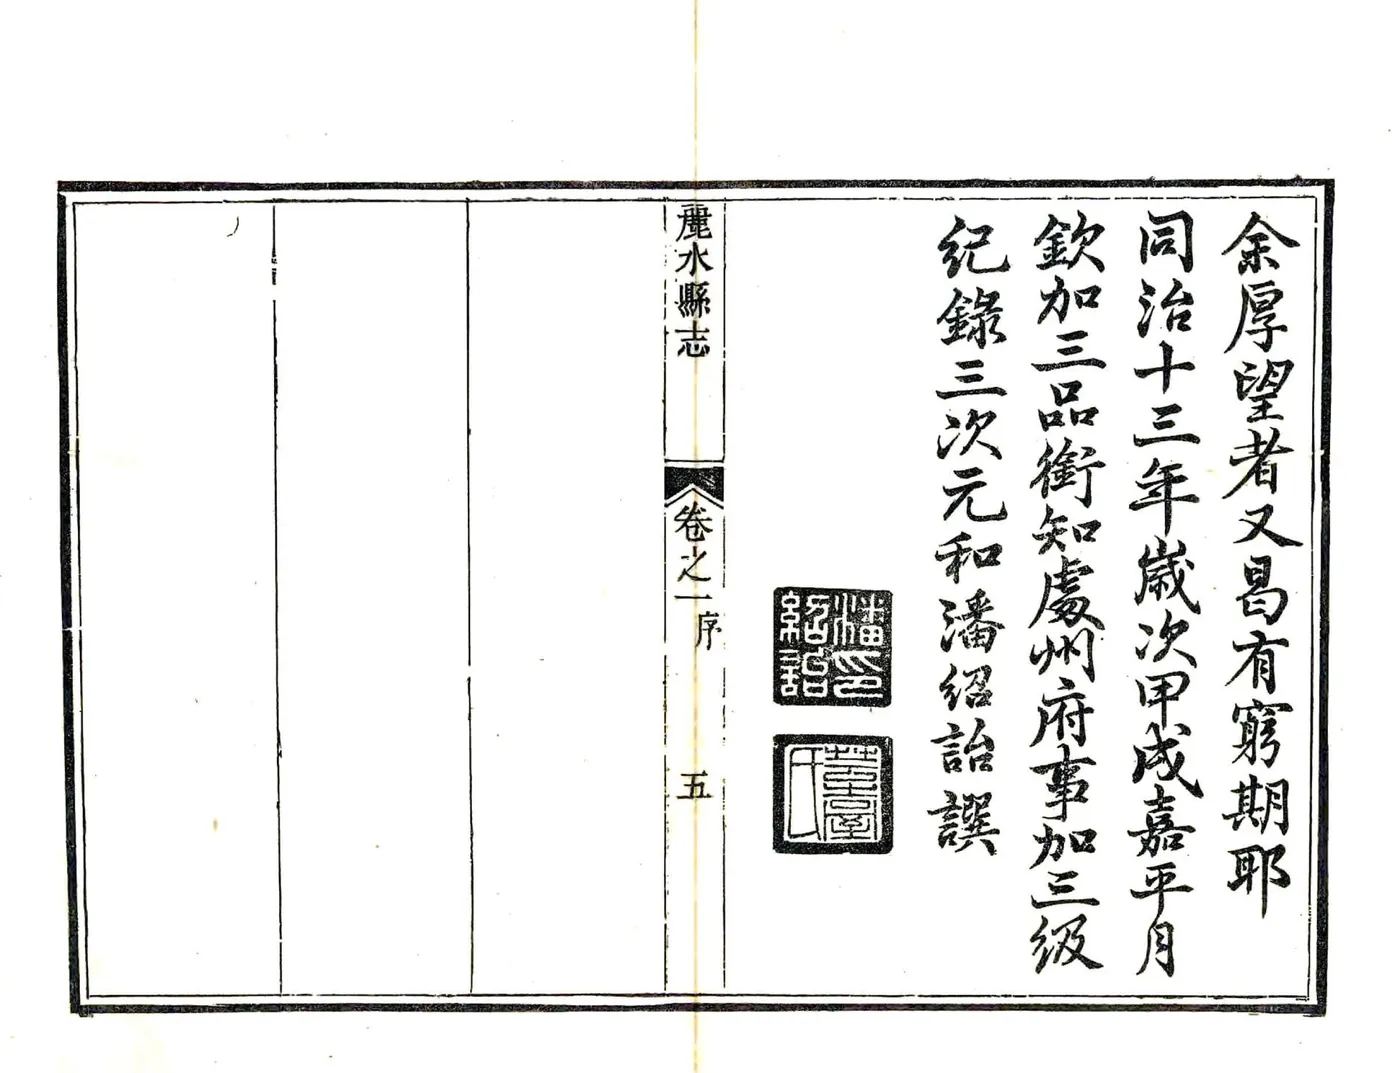 余厚望者又曷有窮期耶
同治十三年歲次甲戌嘉平月
欽加三品銜知處州府事加三級
紀錄三次元和潘紹詒撰
潘印紹詒
氏
麗水縣志
卷之一 序
五